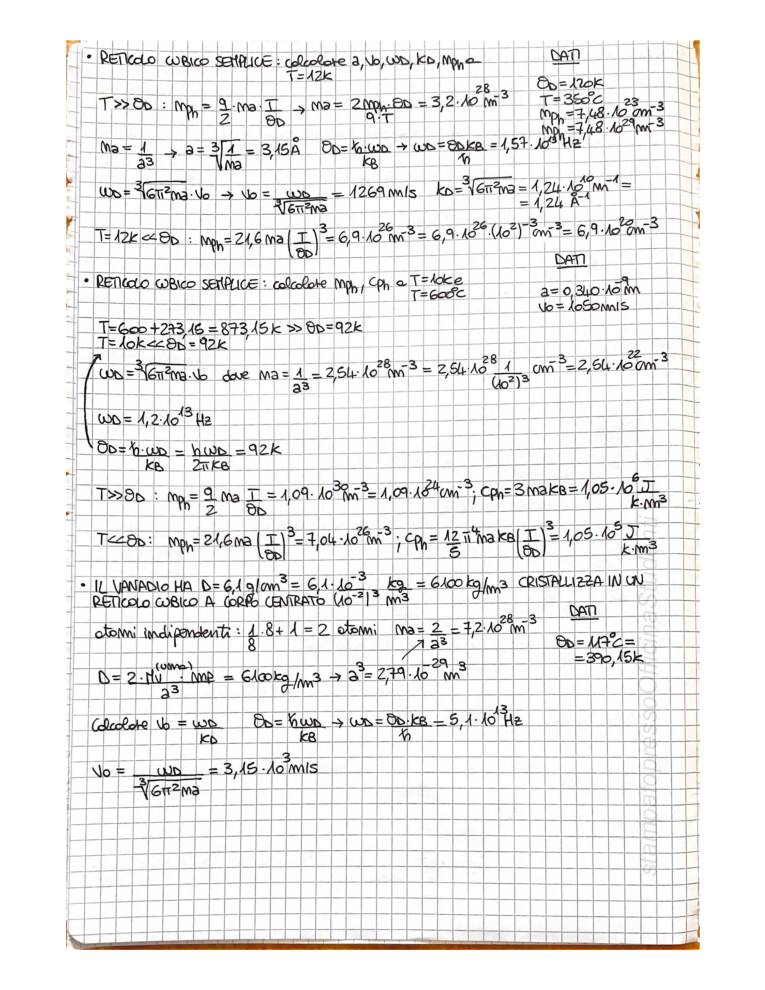 • RETICOLO CUBICO SEMPLICE: calcolare a, vo, ωD, KD, mph a
T=12K
DATI
θD=120K
T=350°C
mph=7,48·10²³ cm⁻³
mph=7,48·10²⁹ m⁻³
T>>θD : mph = 9/2 · ma · T/θD → ma = 2mph·θD/9·T = 3,2·10²⁸ m⁻³
ma = 1/a³ → a = ³√(1/ma) = 3,15Å θD = ħ·ωD/KB → ωD = θD KB/ħ = 1,57·10¹³ Hz
ωD = ³√(6π²ma)·vo → vo = ωD/³√(6π²ma) = 1269 m/s KD = ³√(6π²ma) = 1,24·10¹⁰ m⁻¹ =
= 1,24 Å⁻¹
T=12K<<θD : mph = 21,6 ma (T/θD)³ = 6,9·10²⁶ m⁻³ = 6,9·10²⁶·(10²)⁻³ cm⁻³ = 6,9·10²⁰ cm⁻³
DATI
• RETICOLO CUBICO SEMPLICE: calcolare mph, cph a T=10K e
T=600°C
a=0,340·10⁻⁹ m
vo=1050 m/s
T=600+273,15=873,15K >> θD=92K
T=10K<<θD=92K
ωD = ³√(6π²ma)·vo dove ma = 1/a³ = 2,54·10²⁸ m⁻³ = 2,54·10²⁸ 1/(10²)³ cm⁻³ = 2,54·10²² cm⁻³
ωD = 1,2·10¹³ Hz
θD = ħ·ωD/KB = hωD/2πKB = 92K
T>>θD : mph = 9/2 ma T/θD = 1,09·10³⁰ m⁻³ = 1,09·10²⁴ cm⁻³; cph = 3maKB = 1,05·10⁶ J/K·m³
T<<θD : mph = 21,6 ma (T/θD)³ = 7,04·10²⁶ m⁻³; cph = 12/5 π⁴ ma KB (T/θD)³ = 1,05·10⁵ J/K·m³
• IL VANADIO HA D=6,1 g/cm³ = 6,1·10⁻³/(10⁻²)³ kg/m³ = 6100 kg/m³ CRISTALLIZZA IN UN
RETICOLO CUBICO A CORPO CENTRATO
DATI
θD=117°C=
=390,15K
atomi indipendenti: 1/8·8+1=2 atomi ma = 2/a³ = 7,2·10²⁸ m⁻³
D = 2·Mv(uma)/a³ · mp = 6100 kg/m³ → a³ = 2,79·10⁻²⁹ m³
Calcolare vo = ωD/KD θD = ħωD/KB → ωD = θD·KB/ħ = 5,1·10¹³ Hz
vo = ωD/³√(6π²ma) = 3,15·10³ m/s